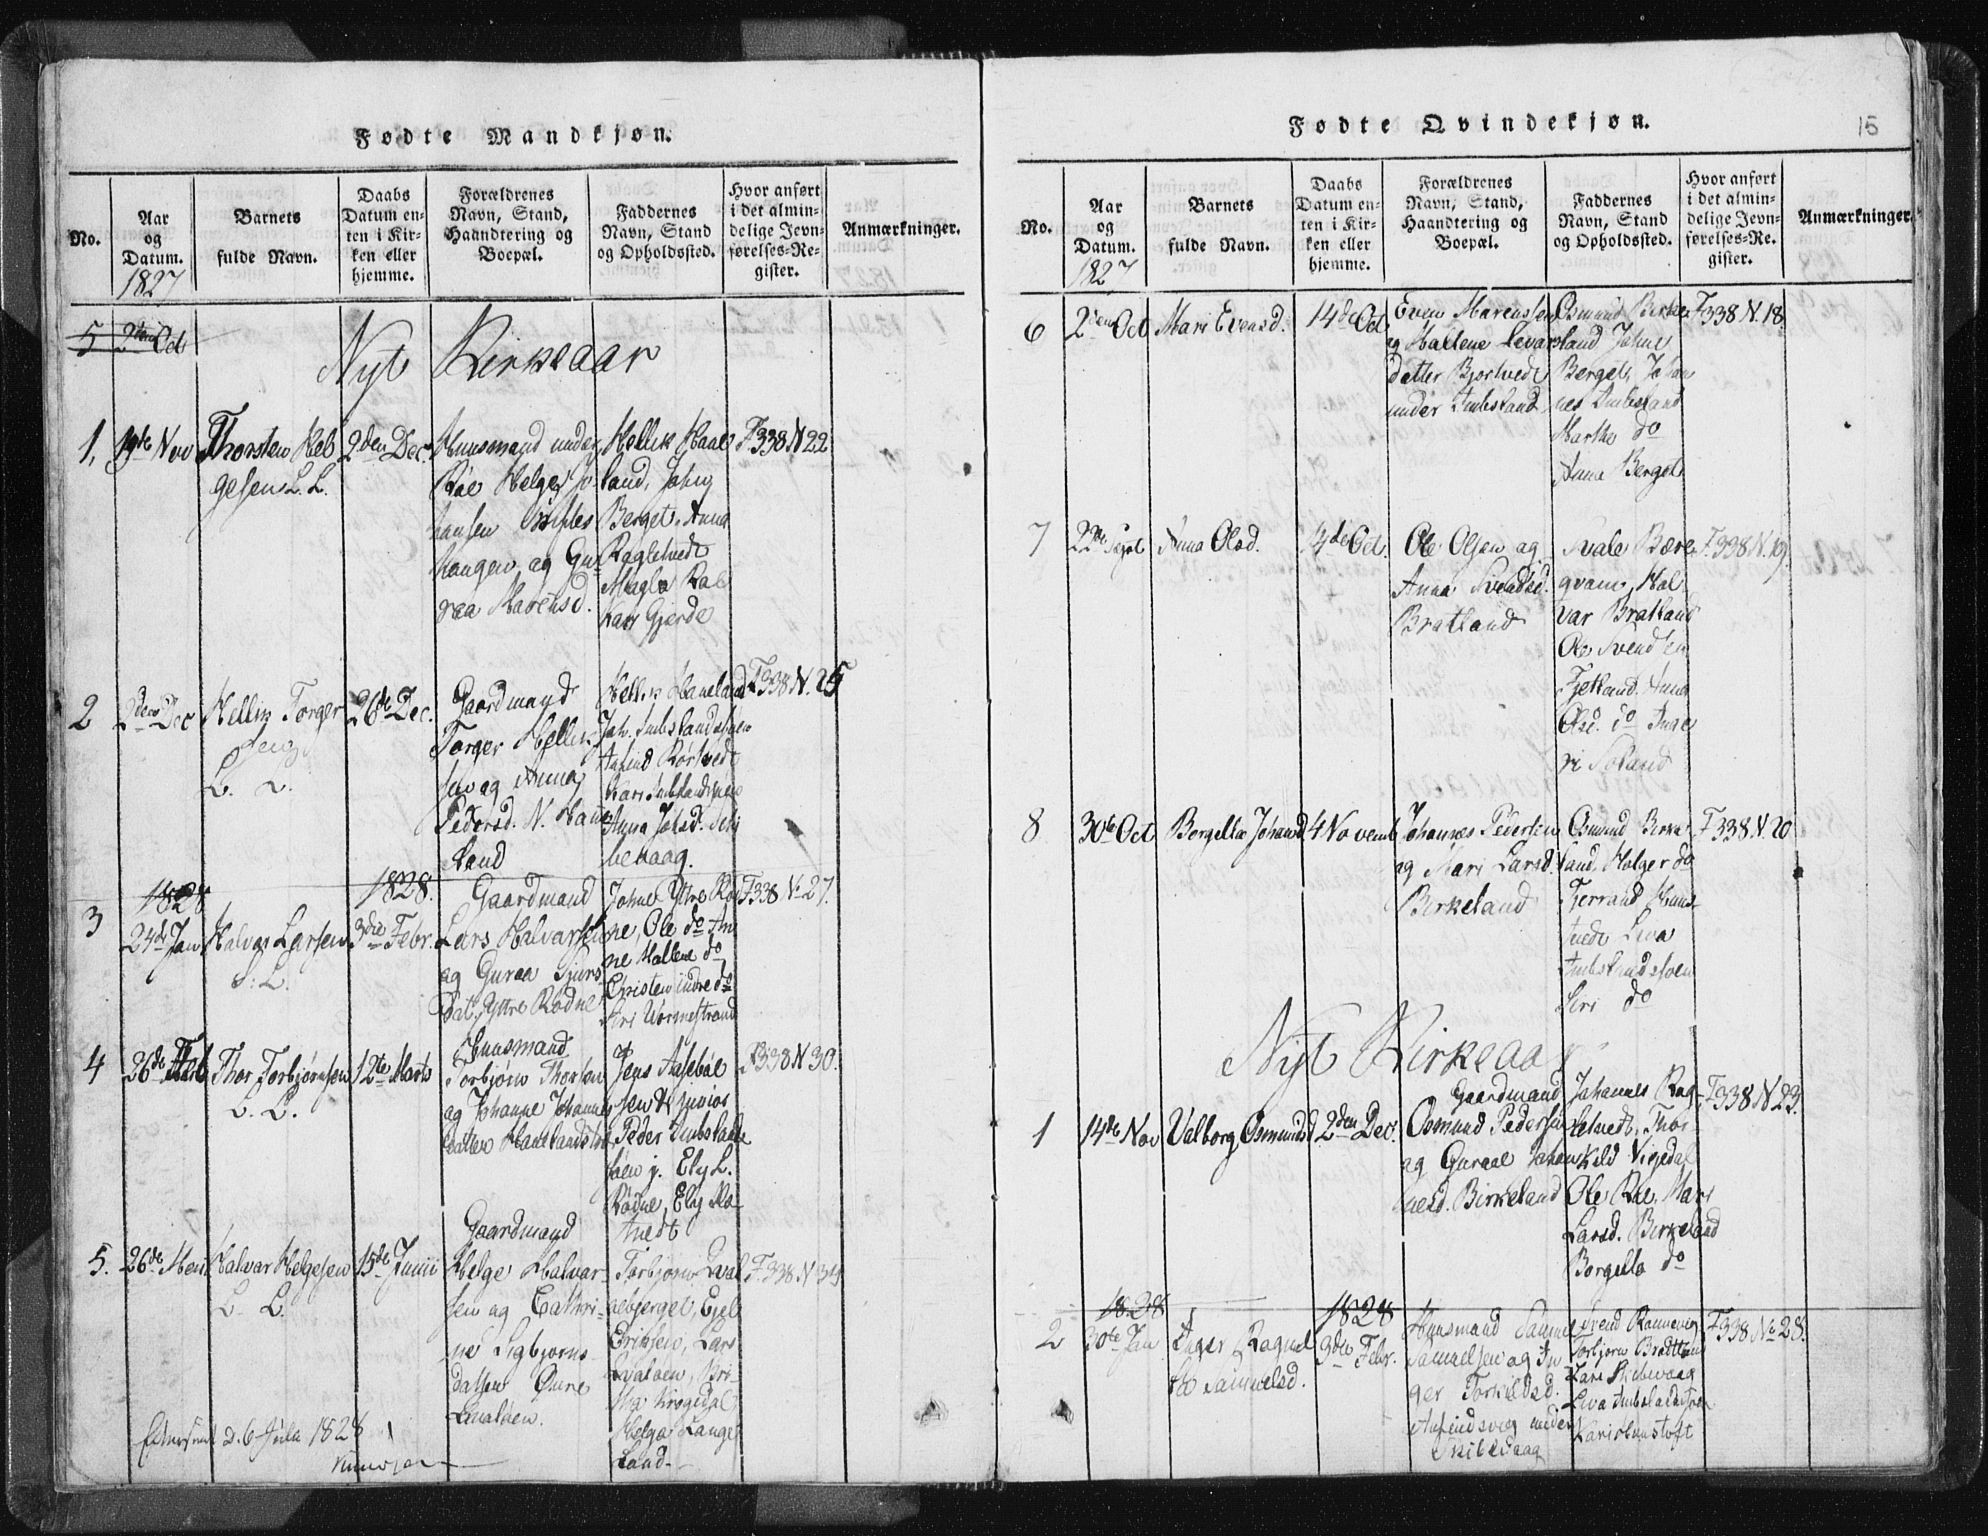 Fødte Mandkjøn.
No.
Aar
og
Datum.
1827
Barnets
fulde Navn.
Daabs
Datum en-
ten i Kir-
ken eller
hjemme.
Forældrenes
Navn, Stand,
Haandtering og
Boepæl.
Faddernes
Navn, Stand
og Opholdssted.
Hvor anført
i det almin-
delige Jevn-
førelses-Re-
gister.
Anmærkninger.
5
2den Oct
Nyt Kirkeaar
1,
19de Nov
Thorsten Hel
gesen L. L.
2den Dec.
Huusmand under
Räe Helge Jo
hansen
hougen og Gu
raa Marensd.
Hellik Haae
land, Johne
Berget, Anna
Ragletvedt
Magla Räe
Kari Gjerde
F338 N 22
2
2den Dec
Hellik Torger
sen
L. L.
26de Dec.
Gaardmand
Torger Hellik
sen og Anna
Pedersd. N. Haue
land
Hellik Haueland
Joh. Imbslandsfoen
Amund Rørtvedt
Kari Imblandsfoen
Anna Johsd. Seki
behaag.
F338 N. 25
1828
1828.
3
24de Jan
Halvor Larsen
S: L.
3die Febr.
Gaardmand
Lars Halvorsen
og Guraa Sjurs
dat. Yttre Rødne
Johne Yttre Rød
ne, Ole do An
ne Hallene do
Christen indre do
Siri Vormestrand
F338 N. 27.
4
26de Feb
Thor Torbjørnsen
L. L.
12te Marts
Huusmand
Torbjørn Thorsen
og Johanne Johannes
datter Hauelandstød
Jens Aaseböe
sen & junior
Peder Imbsland
föen j. Ely L.
Rødne, Ely Ha
tvedt
F338 N 30.
5.
26de Mai
Halvar Helgesen
L. L.
15de Junii
Gaardmand
Helge Halvar-
sen og Cathri-
ne Sigbjørns
datter Øvre
Lvaloen.
Torbjørn Qval
nebjerget, Ejel
Eriksen, Lars
Lvaloen, Bri
tha Krogedal
Helga Lange
land.-
F. 338 N 34
d. 6 Julii 1828
Fødte Qvindekjøn.
15
No.
Aar
og
Datum.
1827
Barnets
fulde Navn.
Daabs
Datum en-
ten i Kir-
ken eller
hjemme.
Forældrenes
Navn, Stand,
Haandtering og
Boepæl.
Faddernes
Navn, Stand
og Opholdssted.
Hvor anført
i det almin-
delige Jevn-
førelses-Re-
gister.
Anmærkninger.
6
2den Oct
Mari Evensd.
14de Oct
Even Marenssen
og Hallene Levars
datter Bjortvedt
under Imbsland
Osmund Birke
land Johne
Berget, Johan
nes Imbsland
Marthe do
Anna Berget
F338 N. 18.
7
22de Sept
Anna Olsd.
14de Oct.
Ole Olsen og
Anna Svendsd.
Bratland
Svale Bære
qvam, Hal
var Bratland
Ole Svendsen
Fjetland. Anna
Olsd. do Inge
ri Søland
F338 N. 19.
8
30te Oct
Borgella Johand
4 Novemb
Johannes Pedersen
og Mari Larsd.
Birkeland
Osmund Birke
land, Holger do
Tjerrand Huns
tvedt Liva
Imbslandsfoen
Siri do
F338 N. 20
Nyt Kirkeaar
1
14de Nov
Valborg Osmundsd
2den Dec.
Gaardmand
Osmund Pedersen
og Guraae Johan
nesd. Birkeland
Johannes Rag-
letvedt, Thor-
kild Vigedal
Ole Räe, Mari
Larsd. Birkeland
Borgella do
F338 N 23.
1828
1828
2
30te Jan
Inger Ragnel
la Samuelsd.
3die Febr.
Huusmand Samuel
Samuelsen og In
ger Torkildsd.
under
Skibevaag
Svend Ramnevig
Torbjørn Brattland
Kari Skibevaag
Liva Imbslandsfoen
Kari Hunstoft
F338 No 28.